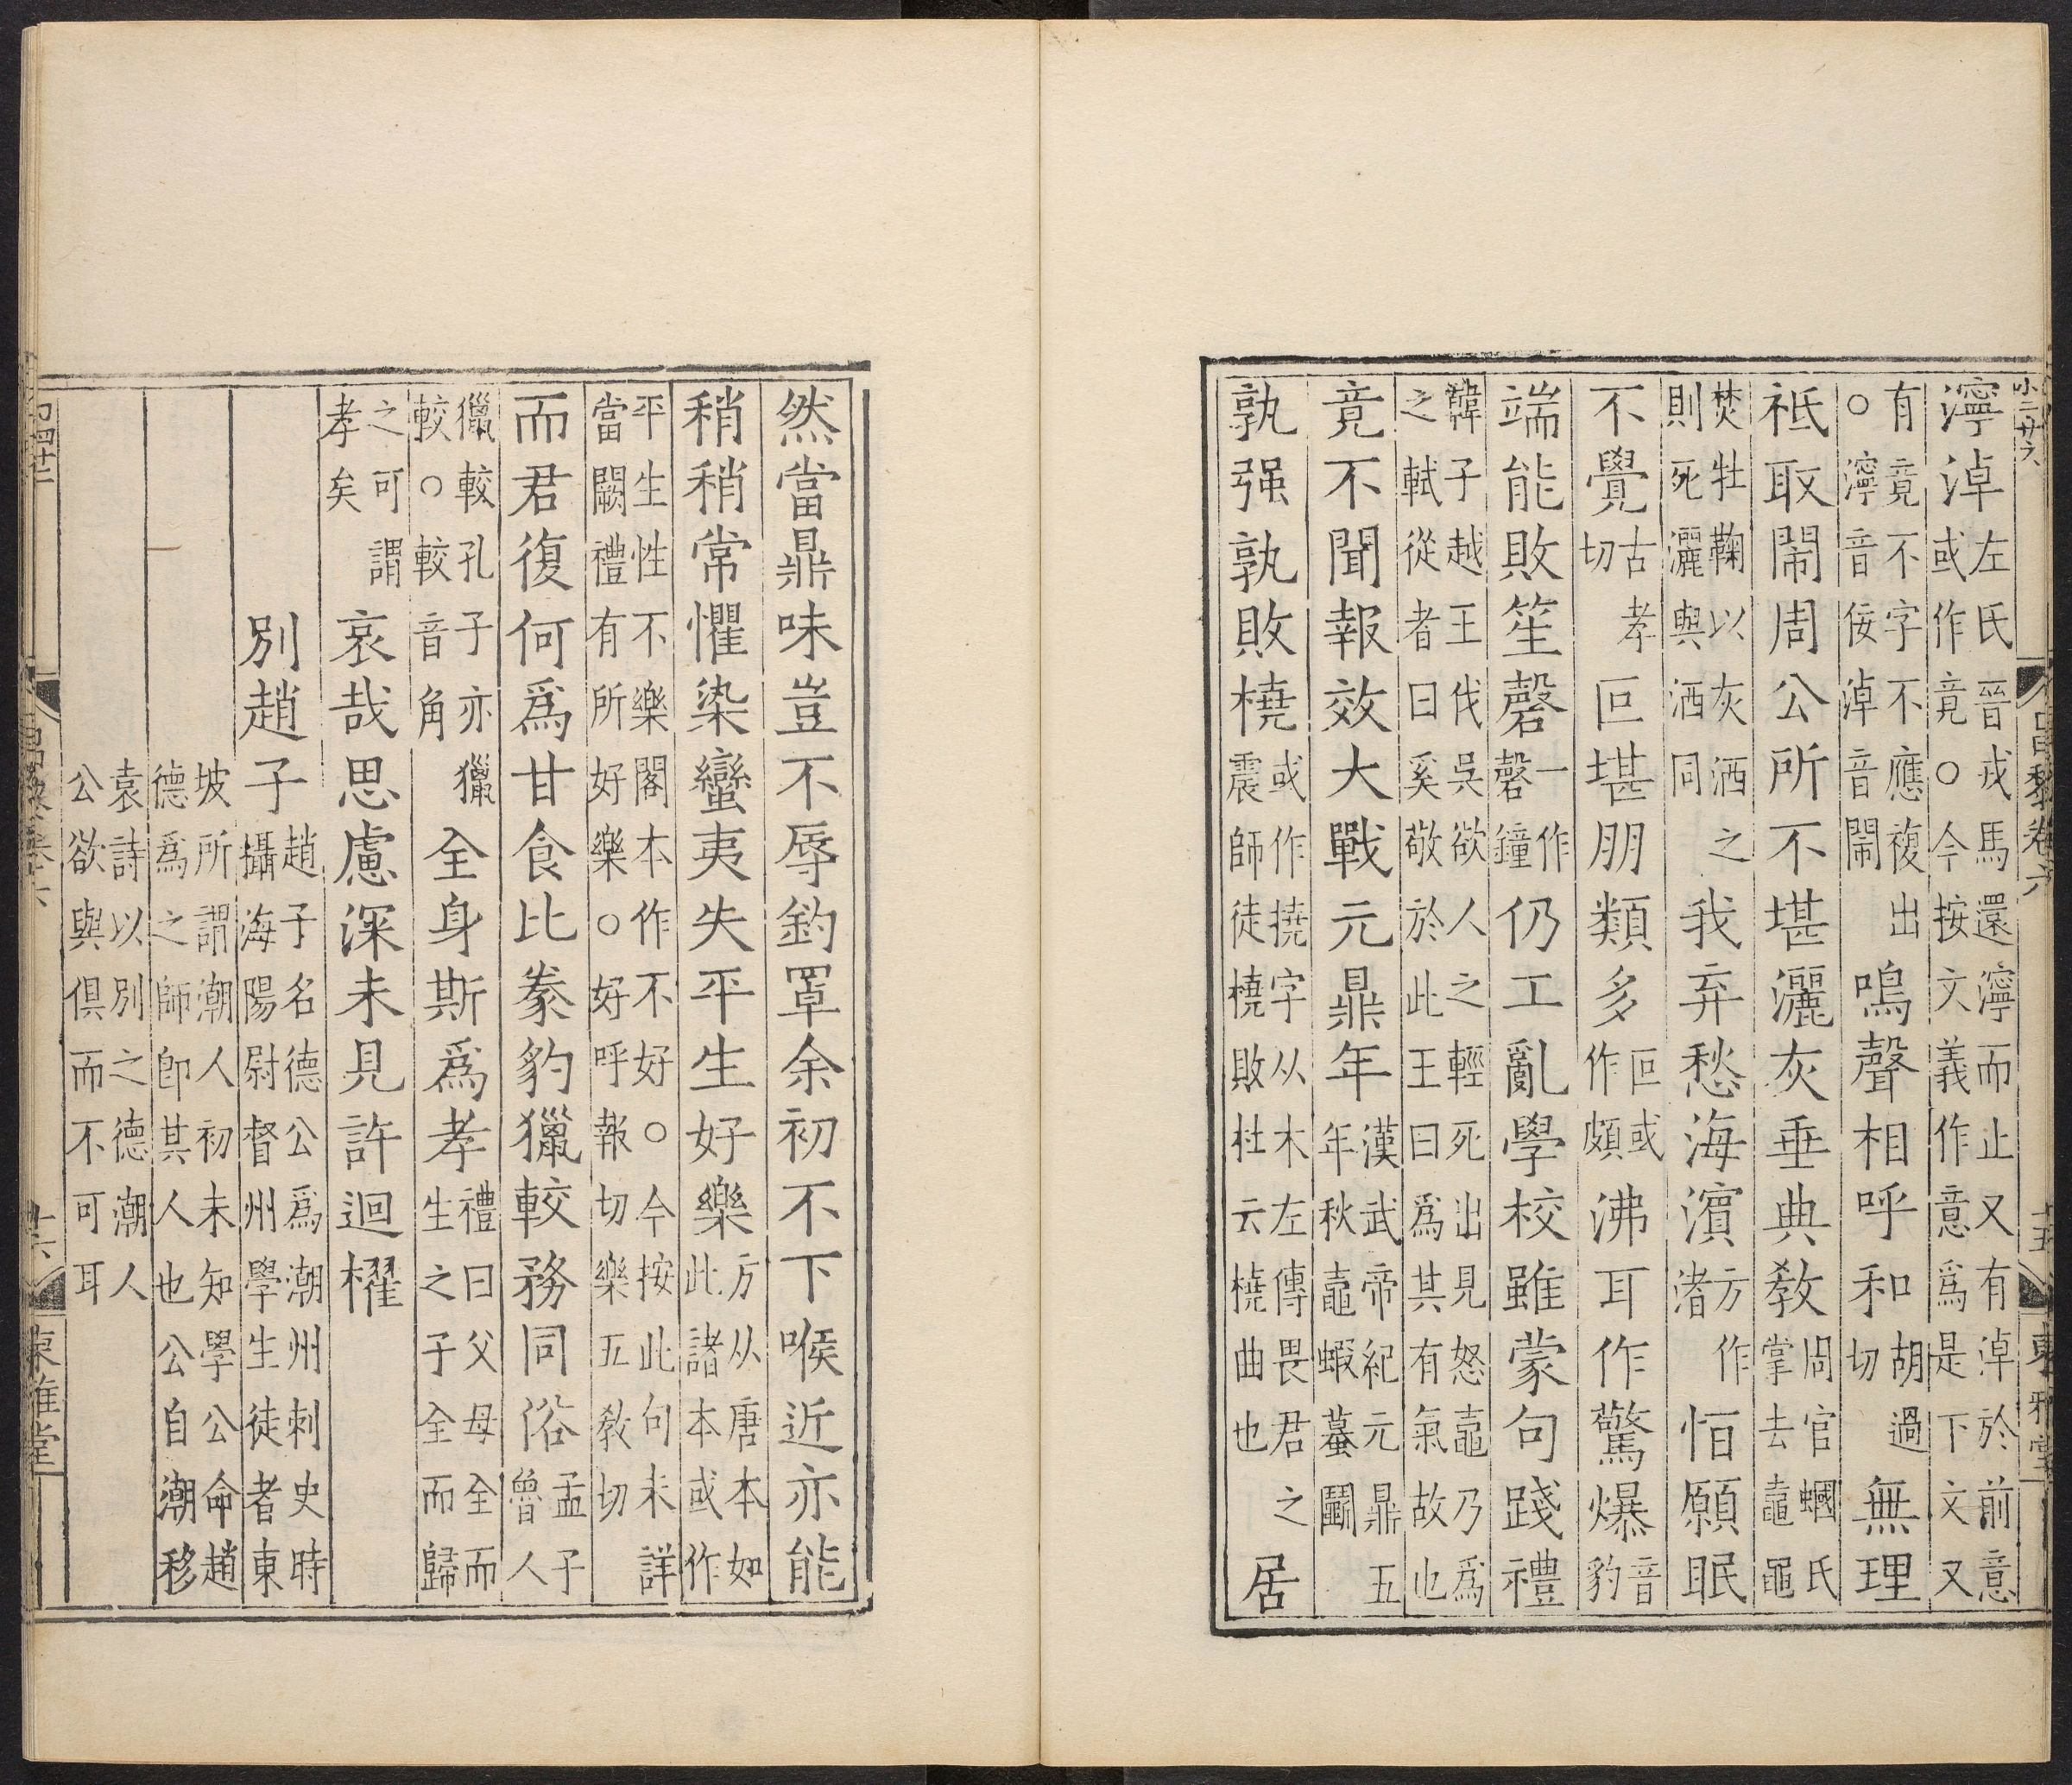 小二廿六
昌黎卷六
十五
東雅堂
濘淖左氏晉戎馬還濘而止又有淖於前意或作竟○今按文義作意爲是下文又
有竟不字不應複出○濘音佞淖音鬧鳴聲相呼和胡過切無理
祗取鬧周公所不堪灑灰垂典敎周官蟈氏掌去鼃黽
焚牡鞠以灰洒之則死灑與洒同我弃愁海濱方作渚恒願眠
不覺古孝切叵堪朋類多叵或作頗沸耳作驚爆音豹
端能敗笙磬一作磬鐘仍工亂學校雖蒙句踐禮
韓子越王伐吳欲人之輕死出見怒鼃乃爲之軾從者曰奚敬於此王曰爲其有氣故也
竟不聞報效大戰元鼎年漢武帝紀元鼎五年秋鼃蝦蟇鬭
孰强孰敗橈或作撓字从木左傳畏君之震師徒橈敗杜云橈曲也居
然當鼎味豈不辱釣罩余初不下喉近亦能
稍稍常懼染蠻夷失平生好樂方从唐本如此諸本或作
平生性不樂閣本作不好○今按此句未詳當闕禮有所好樂○好呼報切樂五敎切
而君復何爲甘食比豢豹獵較務同俗孟子魯人
獵較孔子亦獵較○較音角全身斯爲孝禮曰父母全而生之子全而歸
之可謂孝矣哀哉思慮深未見許迴櫂
別趙子趙子名德公爲潮州刺史時攝海陽尉督州學生徒者東
坡所謂潮人初未知學公命趙德爲之師卽其人也公自潮移
袁詩以別之德潮人公欲與俱而不可耳
昌黎卷六
十六
東雅堂